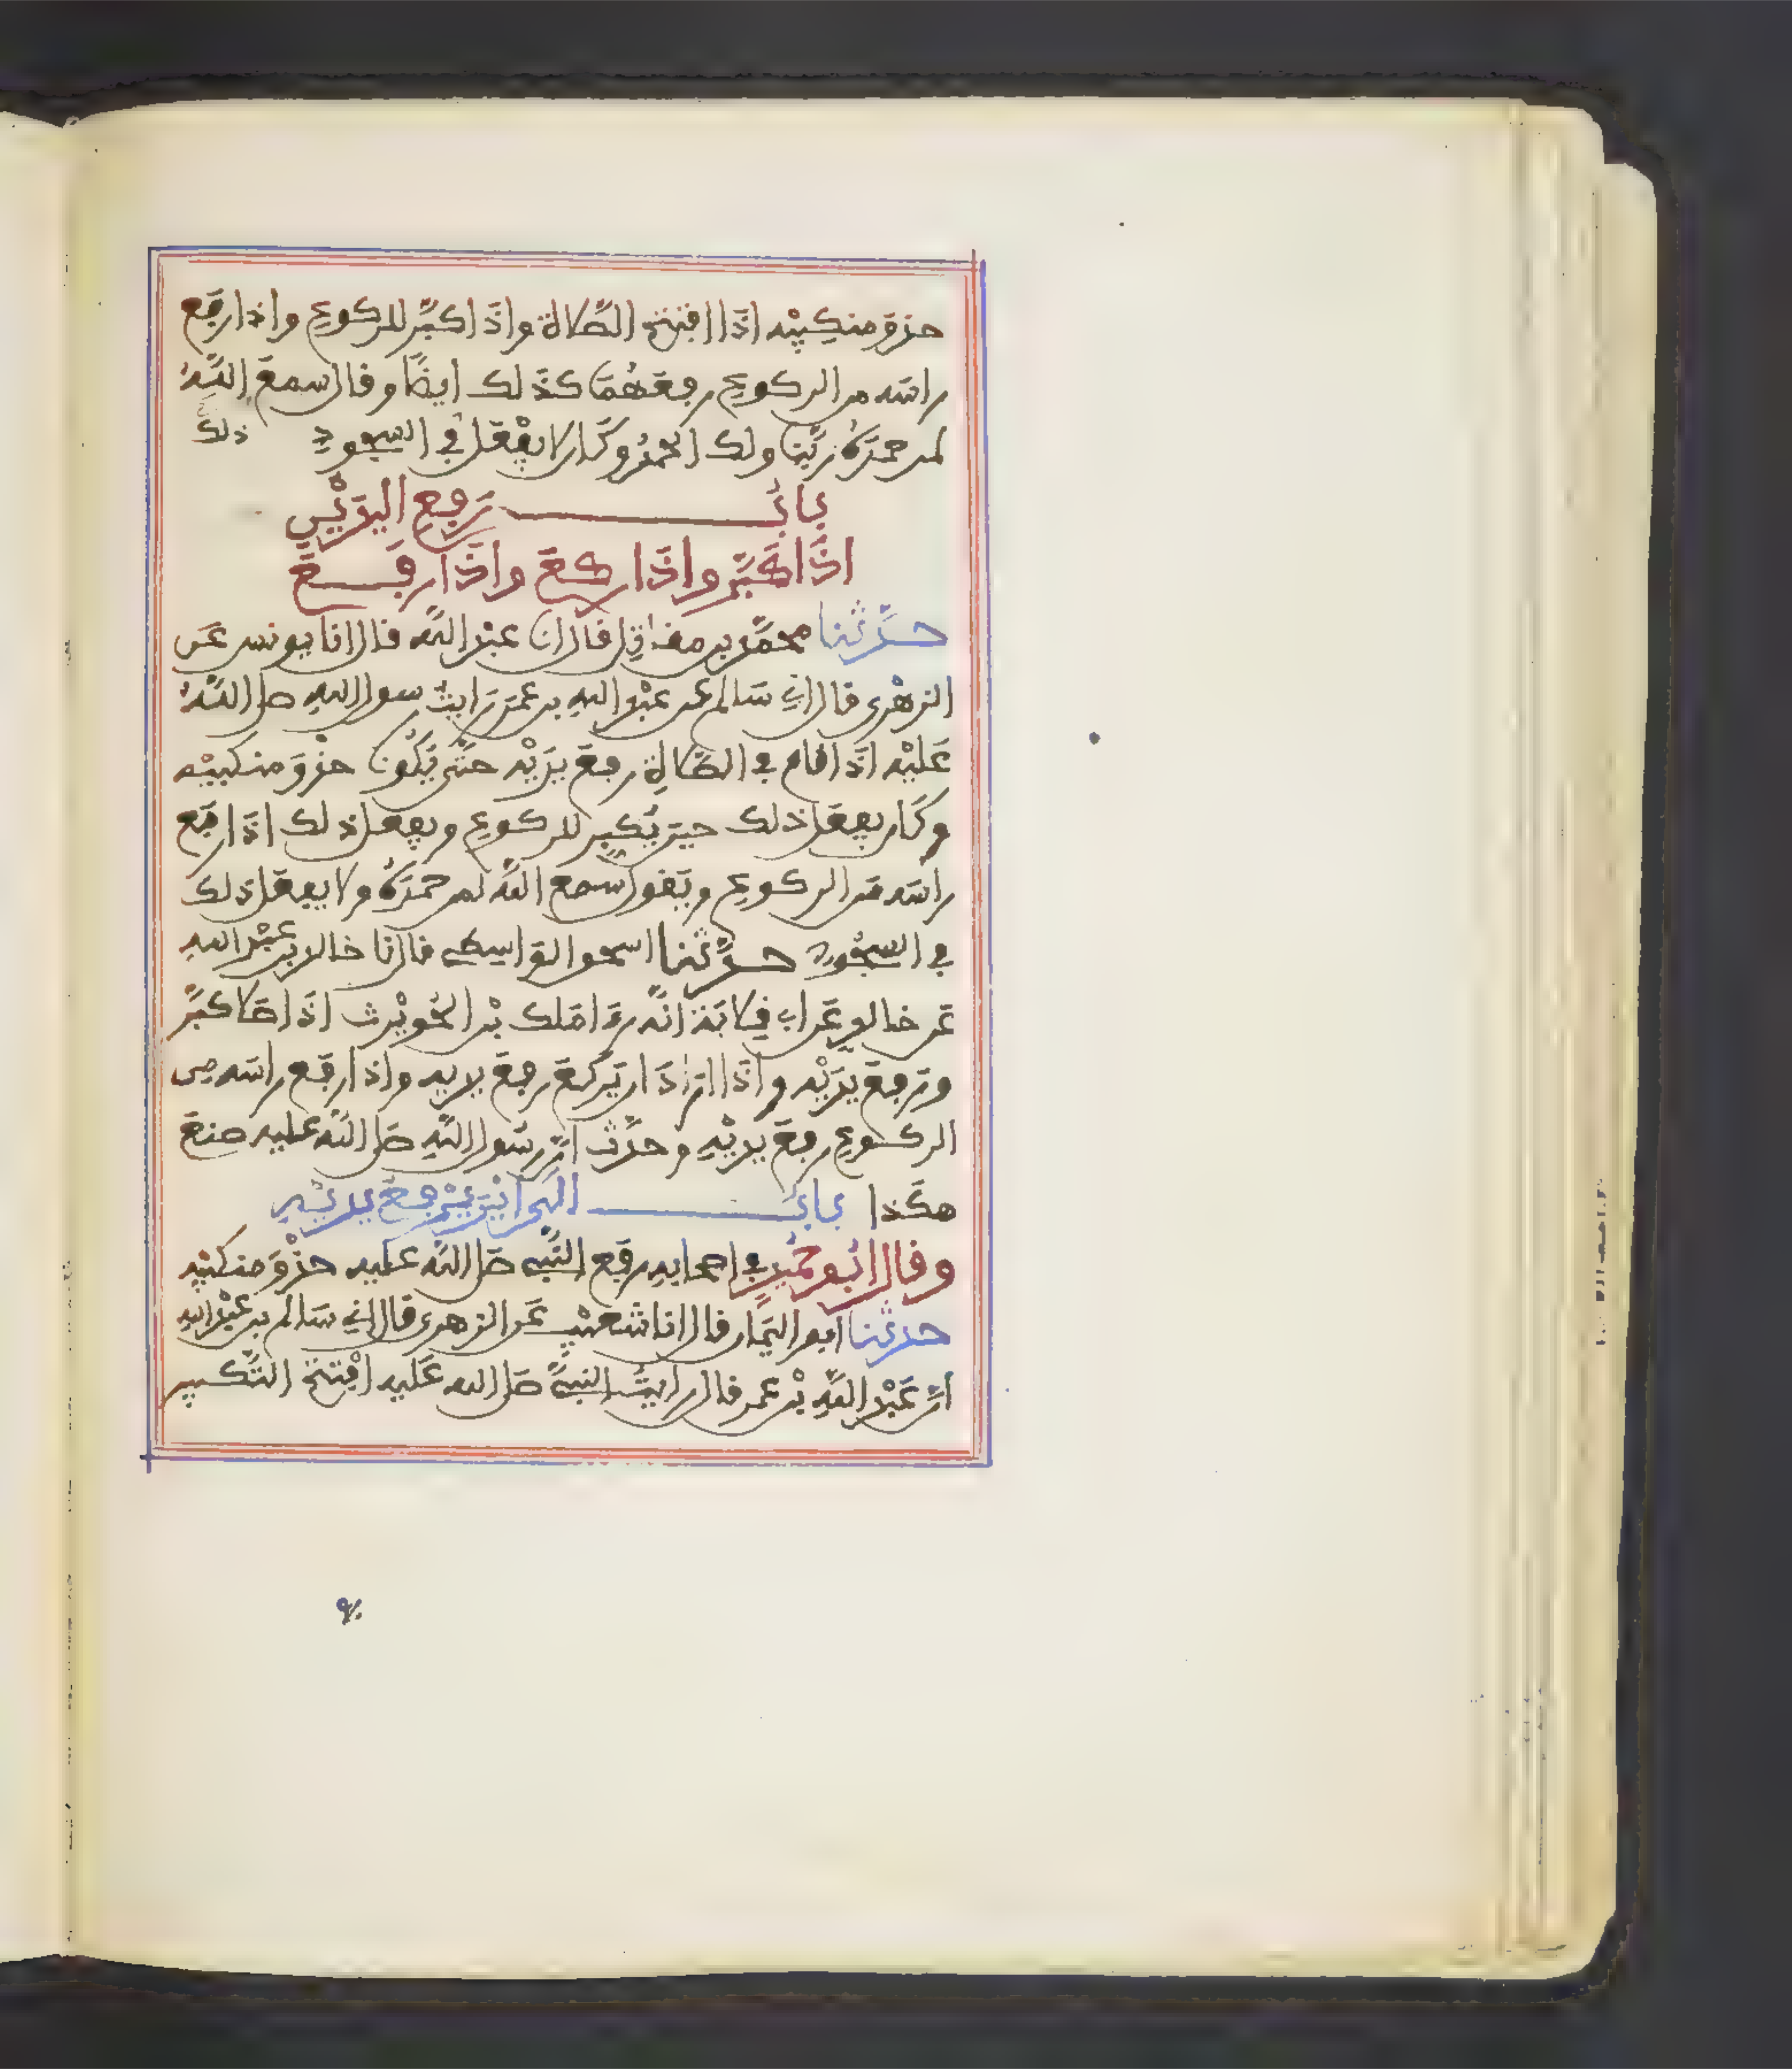 حذو منكبيه اذا افتتح الصلاة واذا كبر للركوع واذا رفع
راسه من الركوع رفعهما كذلك ايضا وقال سمع الله
لمن حمده ربنا ولك الحمد وكان لا يفعل في السجود ذلك
باب رفع اليدين
اذا كبر واذا ركع واذا رفع
حدثنا محمد بن مقاتل قال انا عبد الله قال انا يونس عن
الزهرى قال اني سالم عن عبد الله بن عمر رايت رسول الله صلى الله
عليه اذا قام في الصلاة رفع يديه حتى يكون حذو منكبيه
وكان يفعل ذلك حين يكبر للركوع ويفعل ذلك اذا رفع
راسه من الركوع ويقول سمع الله لمن حمده ولا يفعل ذلك
في السجود حدثنا اسحق الواسطي قال نا خالد بن عبد الله
عن خالد عن ابي قلابة انه را ملك بن الحويرث اذا صلا كبر
ورفع يديه واذا اراد ان يركع رفع يديه واذا رفع راسه من
الركوع رفع يديه وحدث ان رسول الله صلى الله عليه صنع
هكذا باب الى اين يرفع يديه
وقال ابو حميد في اصحابه رفع النبي صلى الله عليه حذو منكبيه
حدثنا ابو اليمان قال انا شعيب عن الزهرى قال اني سالم بن عبد الله
ان عبد الله بن عمر قال رايت النبي صلى الله عليه افتتح التكبير